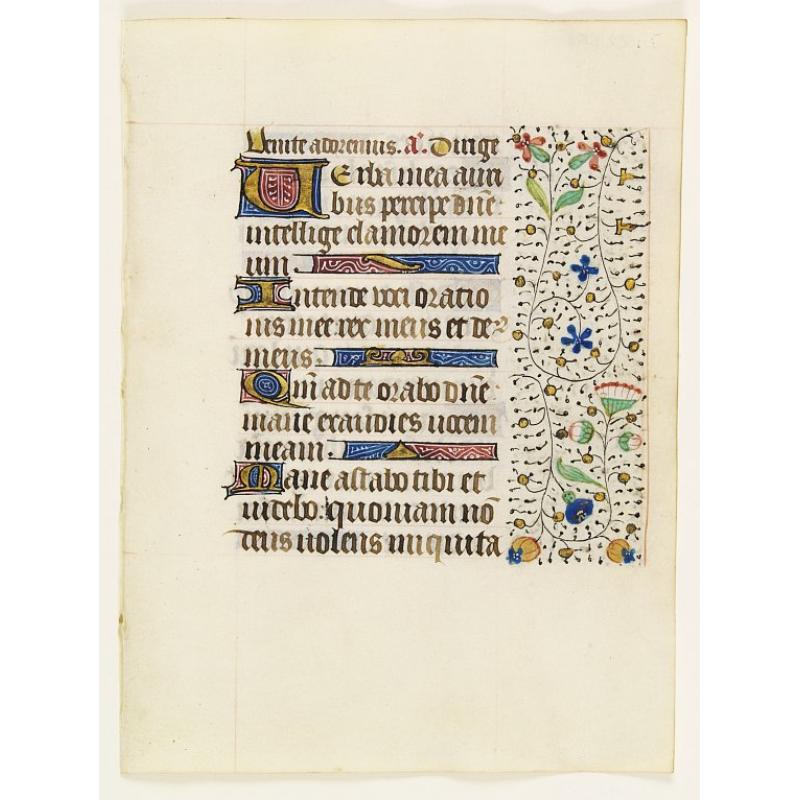 Venite adoremus. a'. Dirige
Verba mea auri
bus percipe dñe
intellige clamorem me
um.
Intende voci oratio
nis mee rex meus et de⁹
meus.
Qm̄ ad te orabo dñe
mane exaudies uocem
meam.
Mane astabo tibi et
uidebo: quoniam nõ
deus uolens iniquita